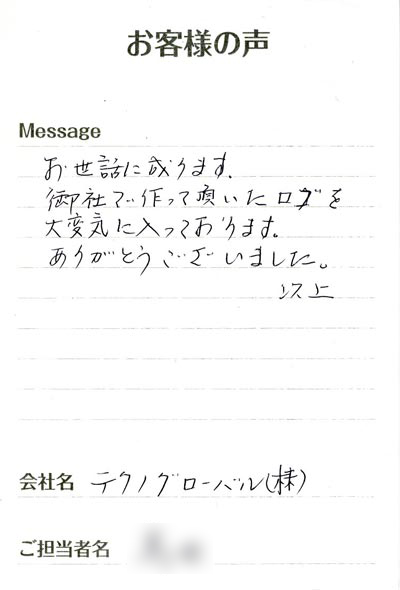 お客様の声
Message
お世話に成ります。
御社で作って頂いたロゴを
大変気に入っております。
ありがとうございました。
以上
会社名 テクノグローバル(株)
ご担当者名